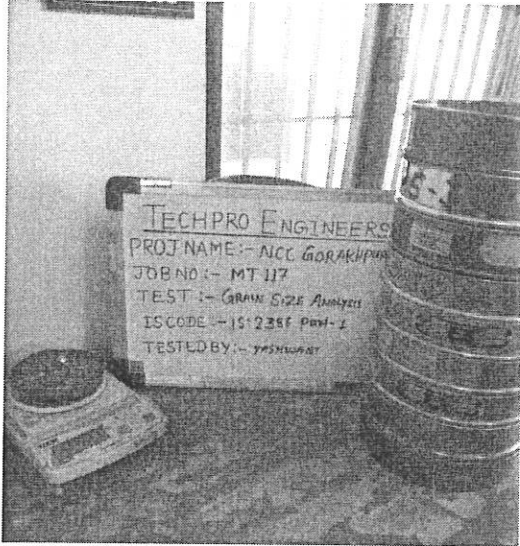 TECHPRO ENGINEERS
PROJ NAME:- NCC GORAKHPUR
JOB NO:- MT 117
TEST:- GRAIN SIZE ANALYSIS
IS CODE:- IS:2386 Part-1
TESTED BY:- YASHWANT